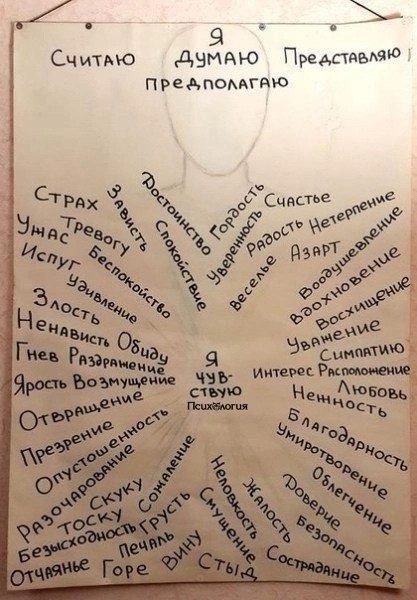 Я
Считаю Думаю Представляю
предполагаю
Страх
Тревогу
Ужас
Беспокойство
Испуг
Удивление
Зависть
Достоинство
Спокойствие
Гордость
Уверенность
Счастье
Радость
Веселье
Нетерпение
Азарт
Воодушевление
Вдохновение
Восхищение
Уважение
Симпатию
Интерес Расположение
Любовь
Нежность
Благодарность
Умиротворение
Облегчение
Доверие
Безопасность
Сострадание
Жалость
Неловкость
Смущение
Стыд
Вину
Сожаление
Грусть
Печаль
Горе
Отчаянье
Безысходность
Тоску
Скуку
Разочарование
Опустошенность
Презрение
Отвращение
Ярость Возмущение
Гнев Раздражение
Ненависть Обиду
Злость
Я
чув-
ствую
Психология